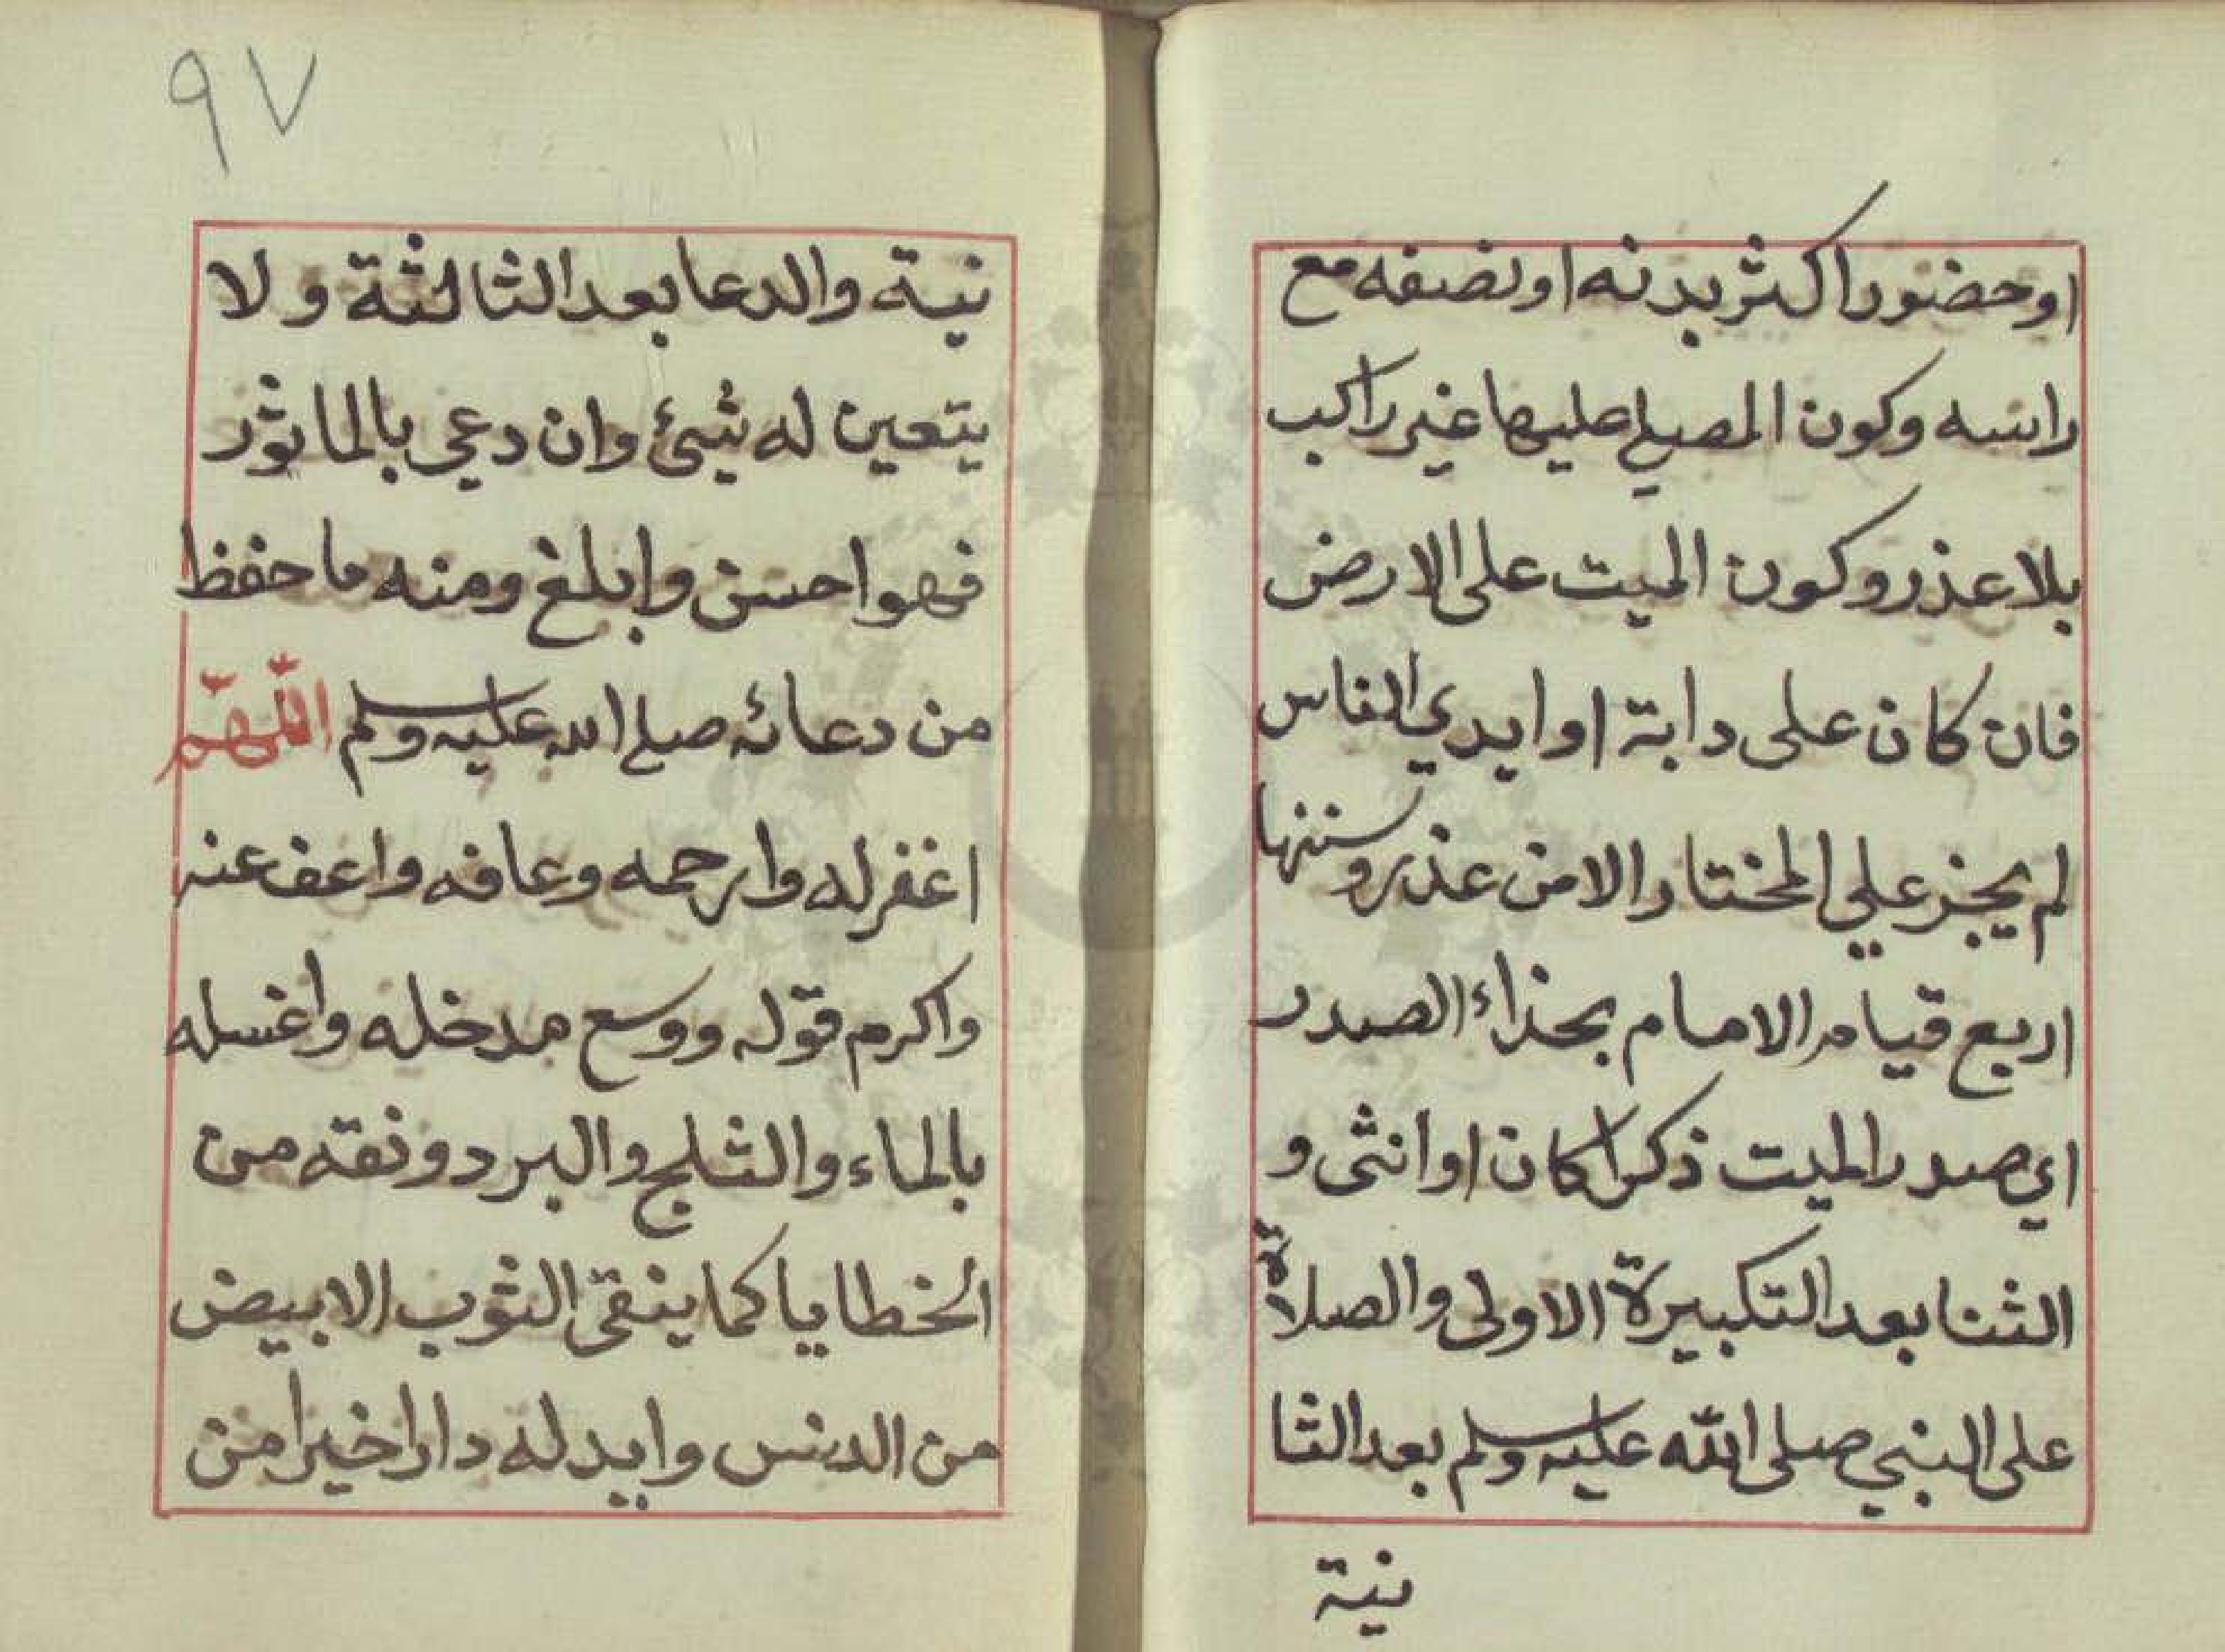 او حضور اكثر بدنه او نصفه مع
راسه وكون المصلي عليها غير راكب
بلا عذر وكون الميت على الارض
فان كان على دابة او ايدي الناس
لم يجز علي المختار الا من عذر وسننها
اربع قيام الامام بحذاء الصدر
اي صدر الميت ذكرا كان او انثى و
الثنا بعد التكبيرة الاولى والصلاة
على النبي صلى اللّه عليه وسلم بعد الثا
نية
٩٧
نية والدعا بعد الثالثة ولا
يتعين له شيئ وان دعي بالماثور
فهو احسن وابلغ ومنه ما حفظ
من دعائه صلى الله عليه وسلم اللّهمّ
اغفر له وارحمه وعافه واعف عنه
واكرم قوله ووسع مدخله واغسله
بالماء والثلج والبرد ونقه من
الخطايا كما ينقى الثوب الابيض
من الدنس وابدله دارا خيرا من